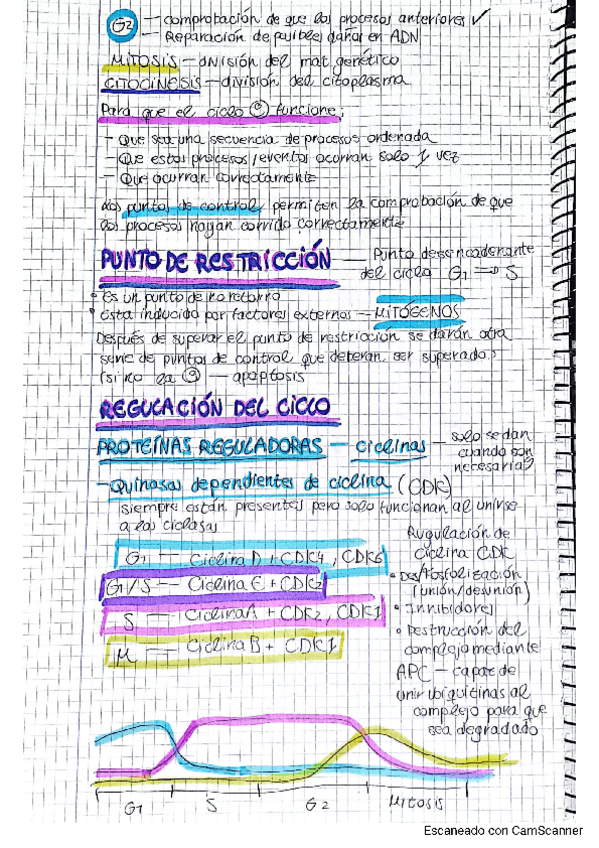 G2 — comprobación de que los procesos anteriores ✓
— Reparación de posibles daños en ADN
MITOSIS — división del mat. genético
CITOCINESIS — división del citoplasma
Para que el ciclo © funcione:
— Que sea una secuencia de procesos ordenada
— Que estos procesos/eventos ocurran solo 1 vez
— Que ocurran correctamente
Los puntos de control permiten la comprobación de que
los procesos hayan corrido correctamente
PUNTO DE RESTRICCIÓN — Punto desencadenante
del ciclo G1 → S
• Es un punto de no retorno
• Esta inducido por factores externos — MITÓGENOS
Después de superar el punto de restricción se darán otra
serie de puntos de control que deberán ser superados
(si no la © — apoptosis
REGULACIÓN DEL CICLO
PROTEÍNAS REGULADORAS — ciclinas — solo se dan
cuando son
necesarias
— Quinasas dependientes de ciclina (CDK)
siempre están presentes pero solo funcionan al unirse
a las ciclasas
G1 — Ciclina D + CDK4, CDK6
G1/S — Ciclina E + CDK2
S — Ciclina A + CDK2, CDK1
M — Ciclina B + CDK1
Rugulación de
ciclina CDK
• Des/fosfolización
(unión/desunión)
• Innibidores
• Destrucción del
complejo mediante
APC — capaz de
unir ubiquitinas al
complejo para que
sea degradado
G1 S G2 Mitosis
Escaneado con CamScanner